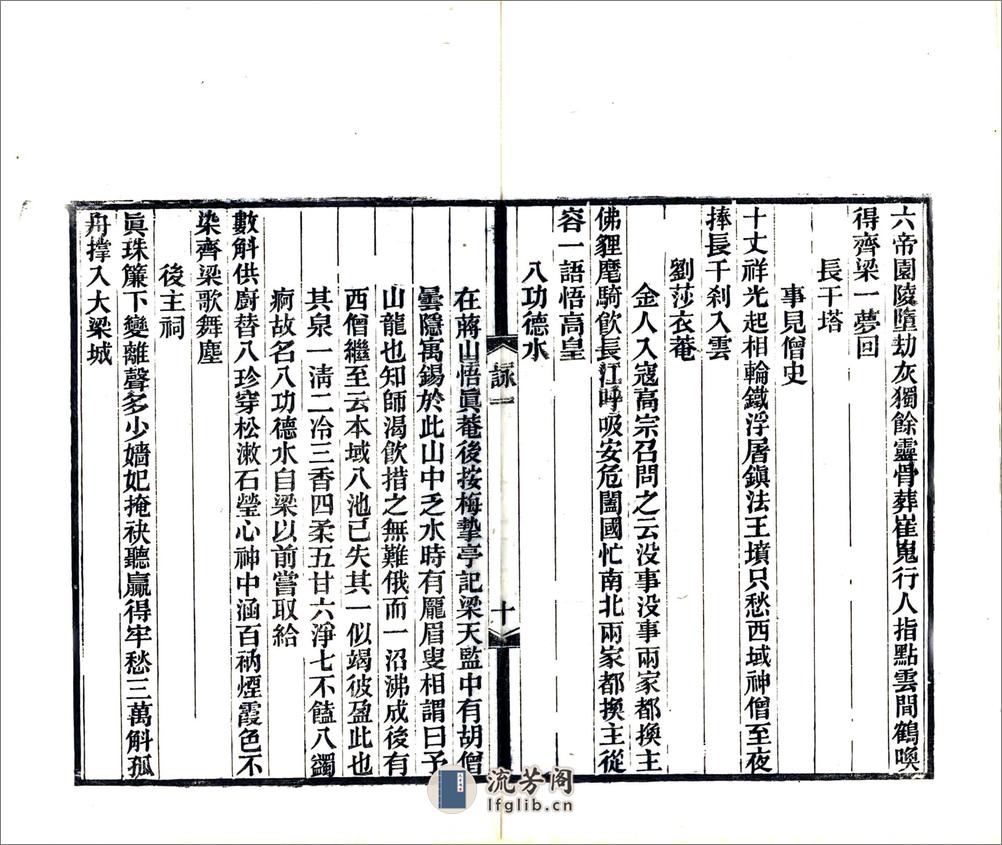 六帝園陵墮劫灰獨餘靈骨葬崔嵬行人指點雲閒鶴喚
得齊梁一夢回
長干塔
事見僧史
十丈祥光起相輪鐵浮屠鎭法王墳只愁西域神僧至夜
捧長干刹入雲
劉莎衣菴
金人入寇高宗召問之云没事没事兩家都換主
佛貍麾騎飲長江呼吸安危闔國忙南北兩家都換主從
容一語悟高皇
八功德水
詠一
十
在蔣山悟眞菴後按梅摯亭記梁天監中有胡僧
曇隱寓錫於此山中乏水時有龎眉叟相謂曰予
山龍也知師渴飲措之無難俄而一沼沸成後有
西僧繼至云本域八池已失其一似竭彼盈此也
其泉一淸二冷三香四柔五甘六淨七不饐八蠲
痾故名八功德水自梁以前嘗取給
數斛供厨替八珍穿松漱石瑩心神中涵百衲煙霞色不
染齊梁歌舞塵
後主祠
眞珠簾下變離聲多少嬙妃掩袂聽贏得牢愁三萬斛孤
舟撑入大梁城
流芳阁
lfglib.cn